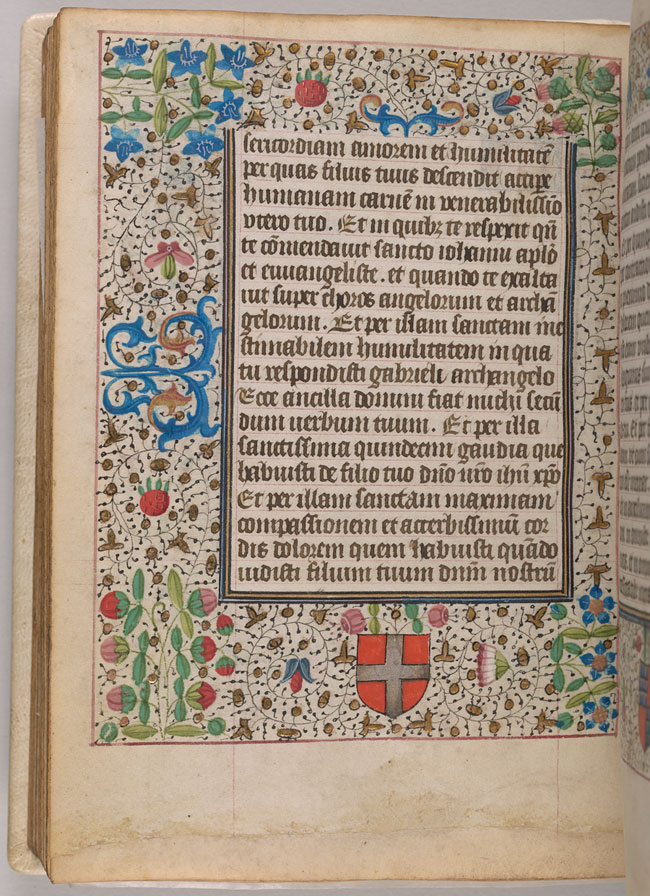 sericordiam amorem et humilitatē
per quas filius tuus descendit accipe
humanam carnē in venerabilissīo
vtero tuo. Et in quibȝ te respexit qn̄
te cōmendauit sancto iohanni aplo
et euuangeliste. et quando te exalta
uit super choros angelorum et archā
gelorum. Et per istam sanctam ine
stimabilem humilitatem in qua
tu respondisti gabrieli archangelo
Ecce ancilla domini fiat michi secū
dum uerbum tuum. Et per illa
sanctissima quindecim gaudia que
habuisti de filio tuo dn̄o nr̄o ihū xp̄o
Et per illam sanctam maximam
compassionem et acerbissimū cor
dis dolorem quem habuisti quādo
uidisti filium tuum dnm̄ nostrū